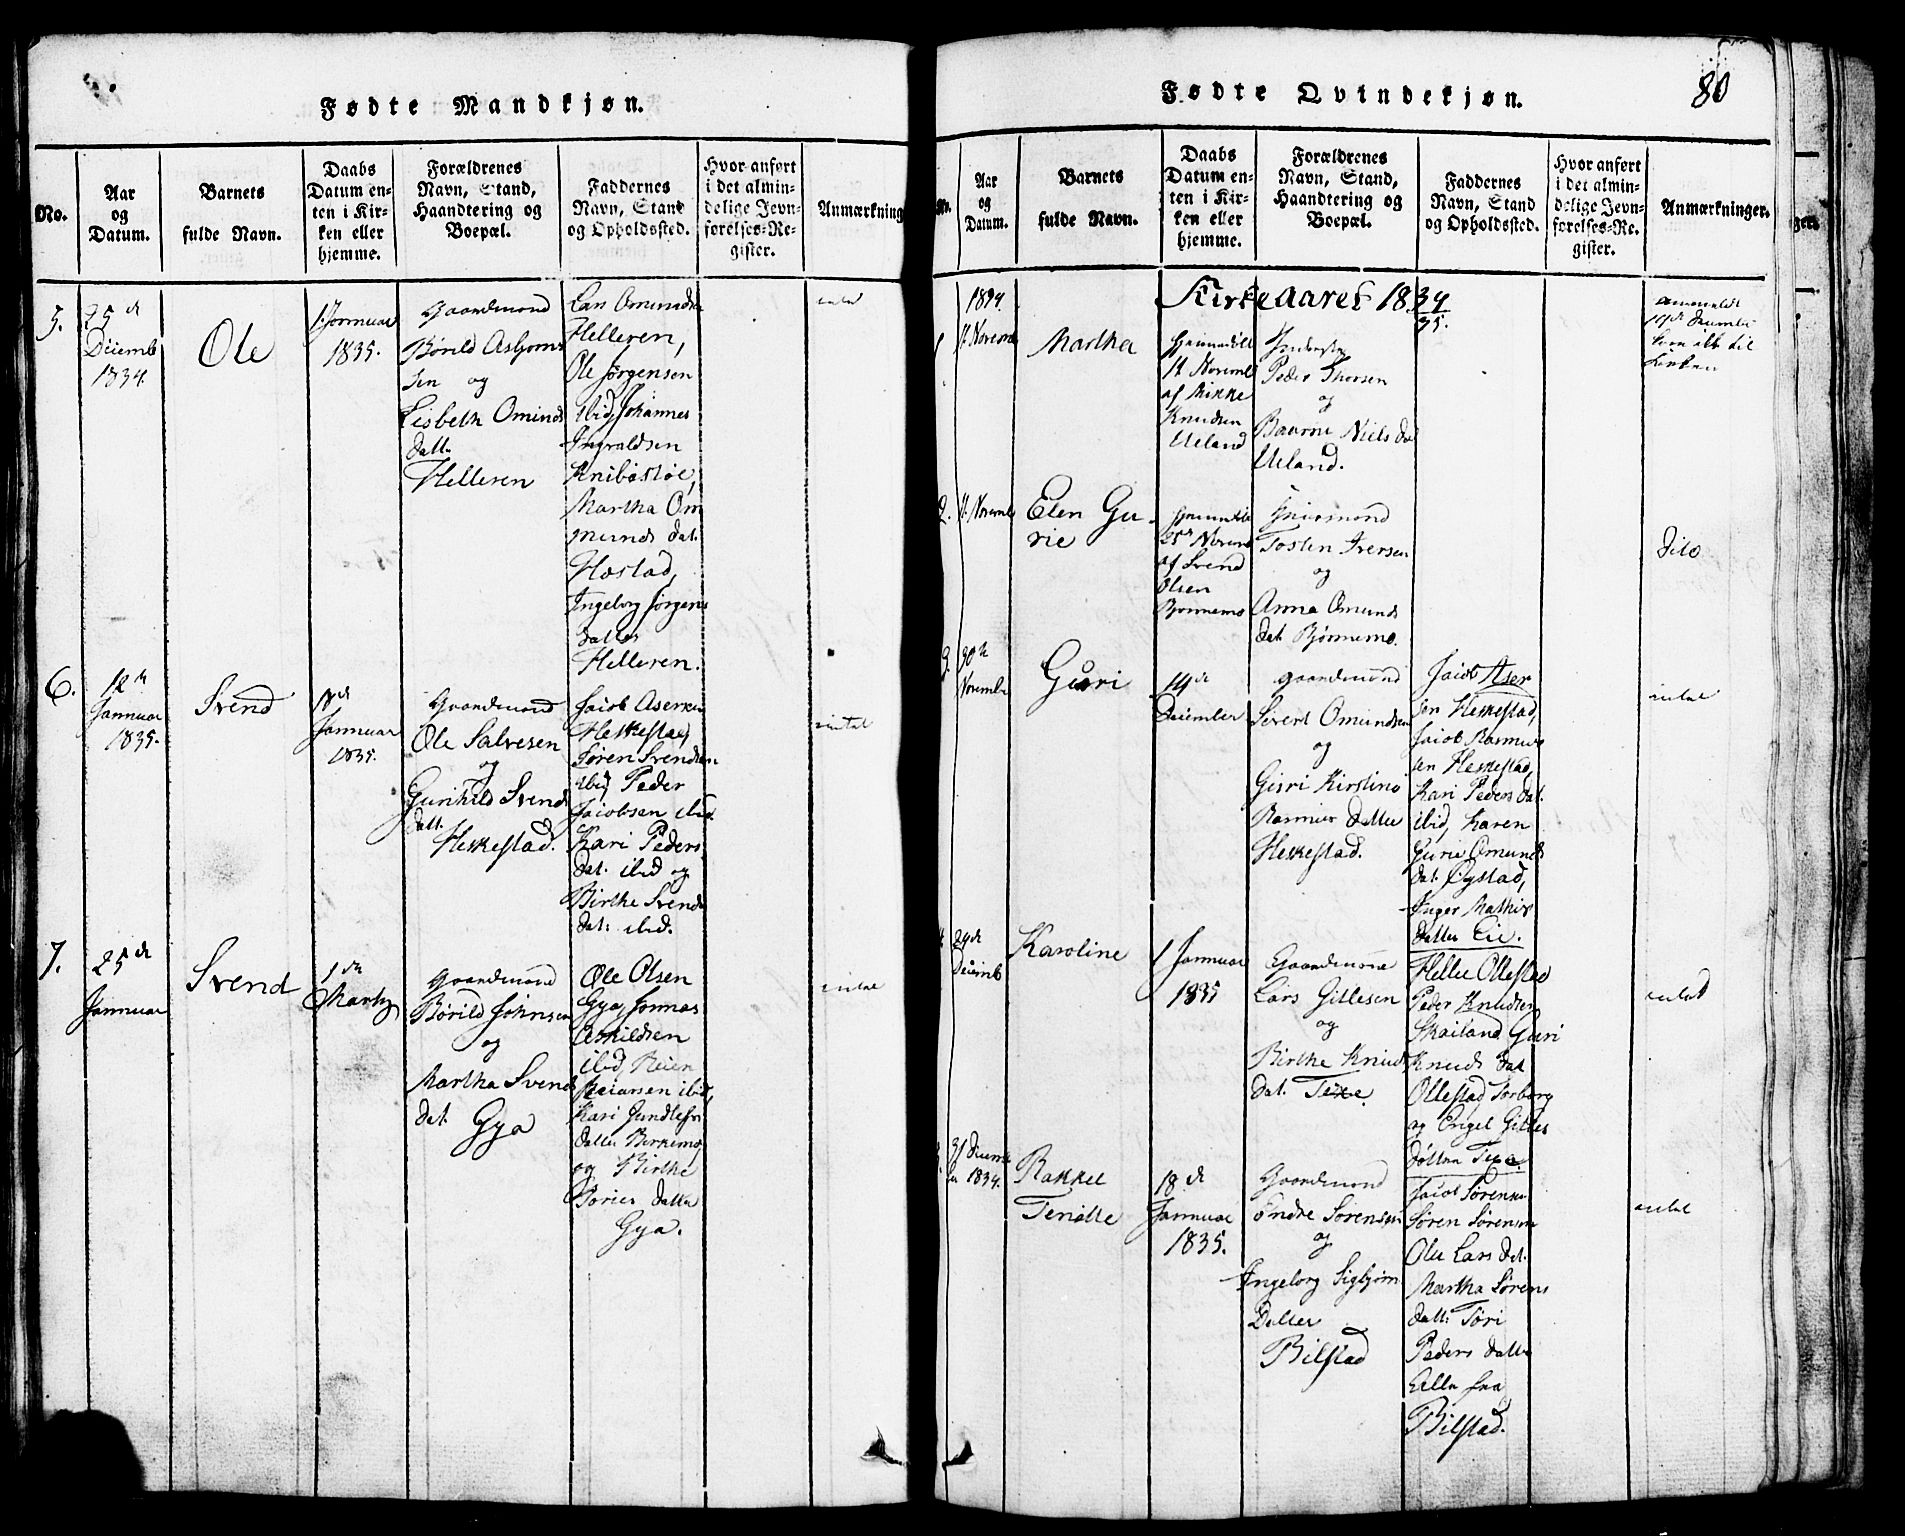 Fødte Mandkjøn.
No.
Aar
og
Datum.
Barnets
fulde Navn.
Daabs
Datum en-
ten i Kir-
ken eller
hjemme.
Forældrenes
Navn, Stand,
Haandtering og
Boepæl.
Faddernes
Navn, Stand
og Opholdssted.
Hvor anført
i det almin-
delige Jevn-
førelses-Re-
gister.
Anmærkning
5.
25de
Decemb
1834.
Ole
1. Januar
1835.
Gaardmand
Børild Asbjorns
sen og
Lisbeth Omunds
datt.
Helleren
Lars Omundsen
Helleren,
Ole Jørgensen
ibid, Johannes
Ingvaldsen
Martha Om
munds dat.
Hæstad,
Ingeborg Jørgens
datter
Helleren.
6.
12te
Januar
1835.
Svend
18de
Januar
1835.
Gaardmand
Ole Salvesen
og
Gunhild Svends
datt.
Heskestad.
Jacob Asersen
Heskestad,
Søren Svendsen
ibid, Peder
Jacobsen ibid.
Kari Peders
dat. ibid og
Birthe Svends
dat. ibid.
7.
25de
Januar
Svend
1ste
Marty
Gaardmand
Børild Johnsen
og
Martha Svends
dat. Gya
Ole Olsen
Gya, Jonnas
Askildsen
ibid, Reier
Reiarsen ibid,
Kari
datter
og Birthe
datter
Gya.
Fødte Qvindekjøn.
80
No.
Aar
og
Datum.
Barnets
fulde Navn.
Daabs
Datum en-
ten i Kir-
ken eller
hjemme.
Forældrenes
Navn, Stand,
Haandtering og
Boepæl.
Faddernes
Navn, Stand
og Opholdssted.
Hvor anført
i det almin-
delige Jevn-
førelses-Re-
gister.
Anmærkninger.
Kirkeaaret 1834/35.
1834.
11. Novemb
Martha
Hjemmedøbt
11 Novemb
af Mikke
Knudsen
Ueland
Peder Thorsen
og
Niels dat
Ueland.
2.
11. Novemb
Elen Gu-
rie
25de Novemb
af Svend
Olsen
Tosten Iversen
og
Anna Omunds
dat. Bjørnemo.
Dito
3.
30te
Novembr
Guri
14de
December
Gaardmand
Sivert Omundsen
og
Guri Kirstine
Rasmus datter
Heskestad.
Jacob Aser
sen Heskestad,
Jacob Rasmus
sen Heskestad,
Kari Peders dat.
ibid, Karen
Gurie Omunds
dat. Øystad,
Inger Mathis
datter Eie.
24de
Decemb
Karoline
1 Januar
1835
Gaardmand
Lars Gitlesen
og
Birthe Knuds
dat. Texe.
Helle Ollestad
Peder Knudsen
Skailand, Guri
Knuds dat
Ollestad, Torborg
og Engel Gitles
døttre Texe.
31 Decemb
1834.
Rakkel
Tenolte
18de
Januar
1835.
Gaardmand
Endre Sørensen
og
Ingeborg Sigbjørn
Datter
Bilstad
Jacob Sørensen
Søren Sørensen
Ole Lars dat.
Martha Sørens
datt. Tori
Peders datter
Alle fra
Bilstad.